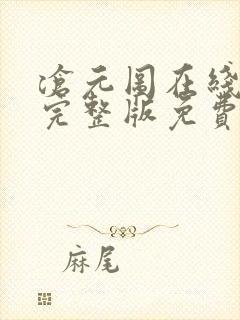 滄元圖在綫
完整版免費
麻尾